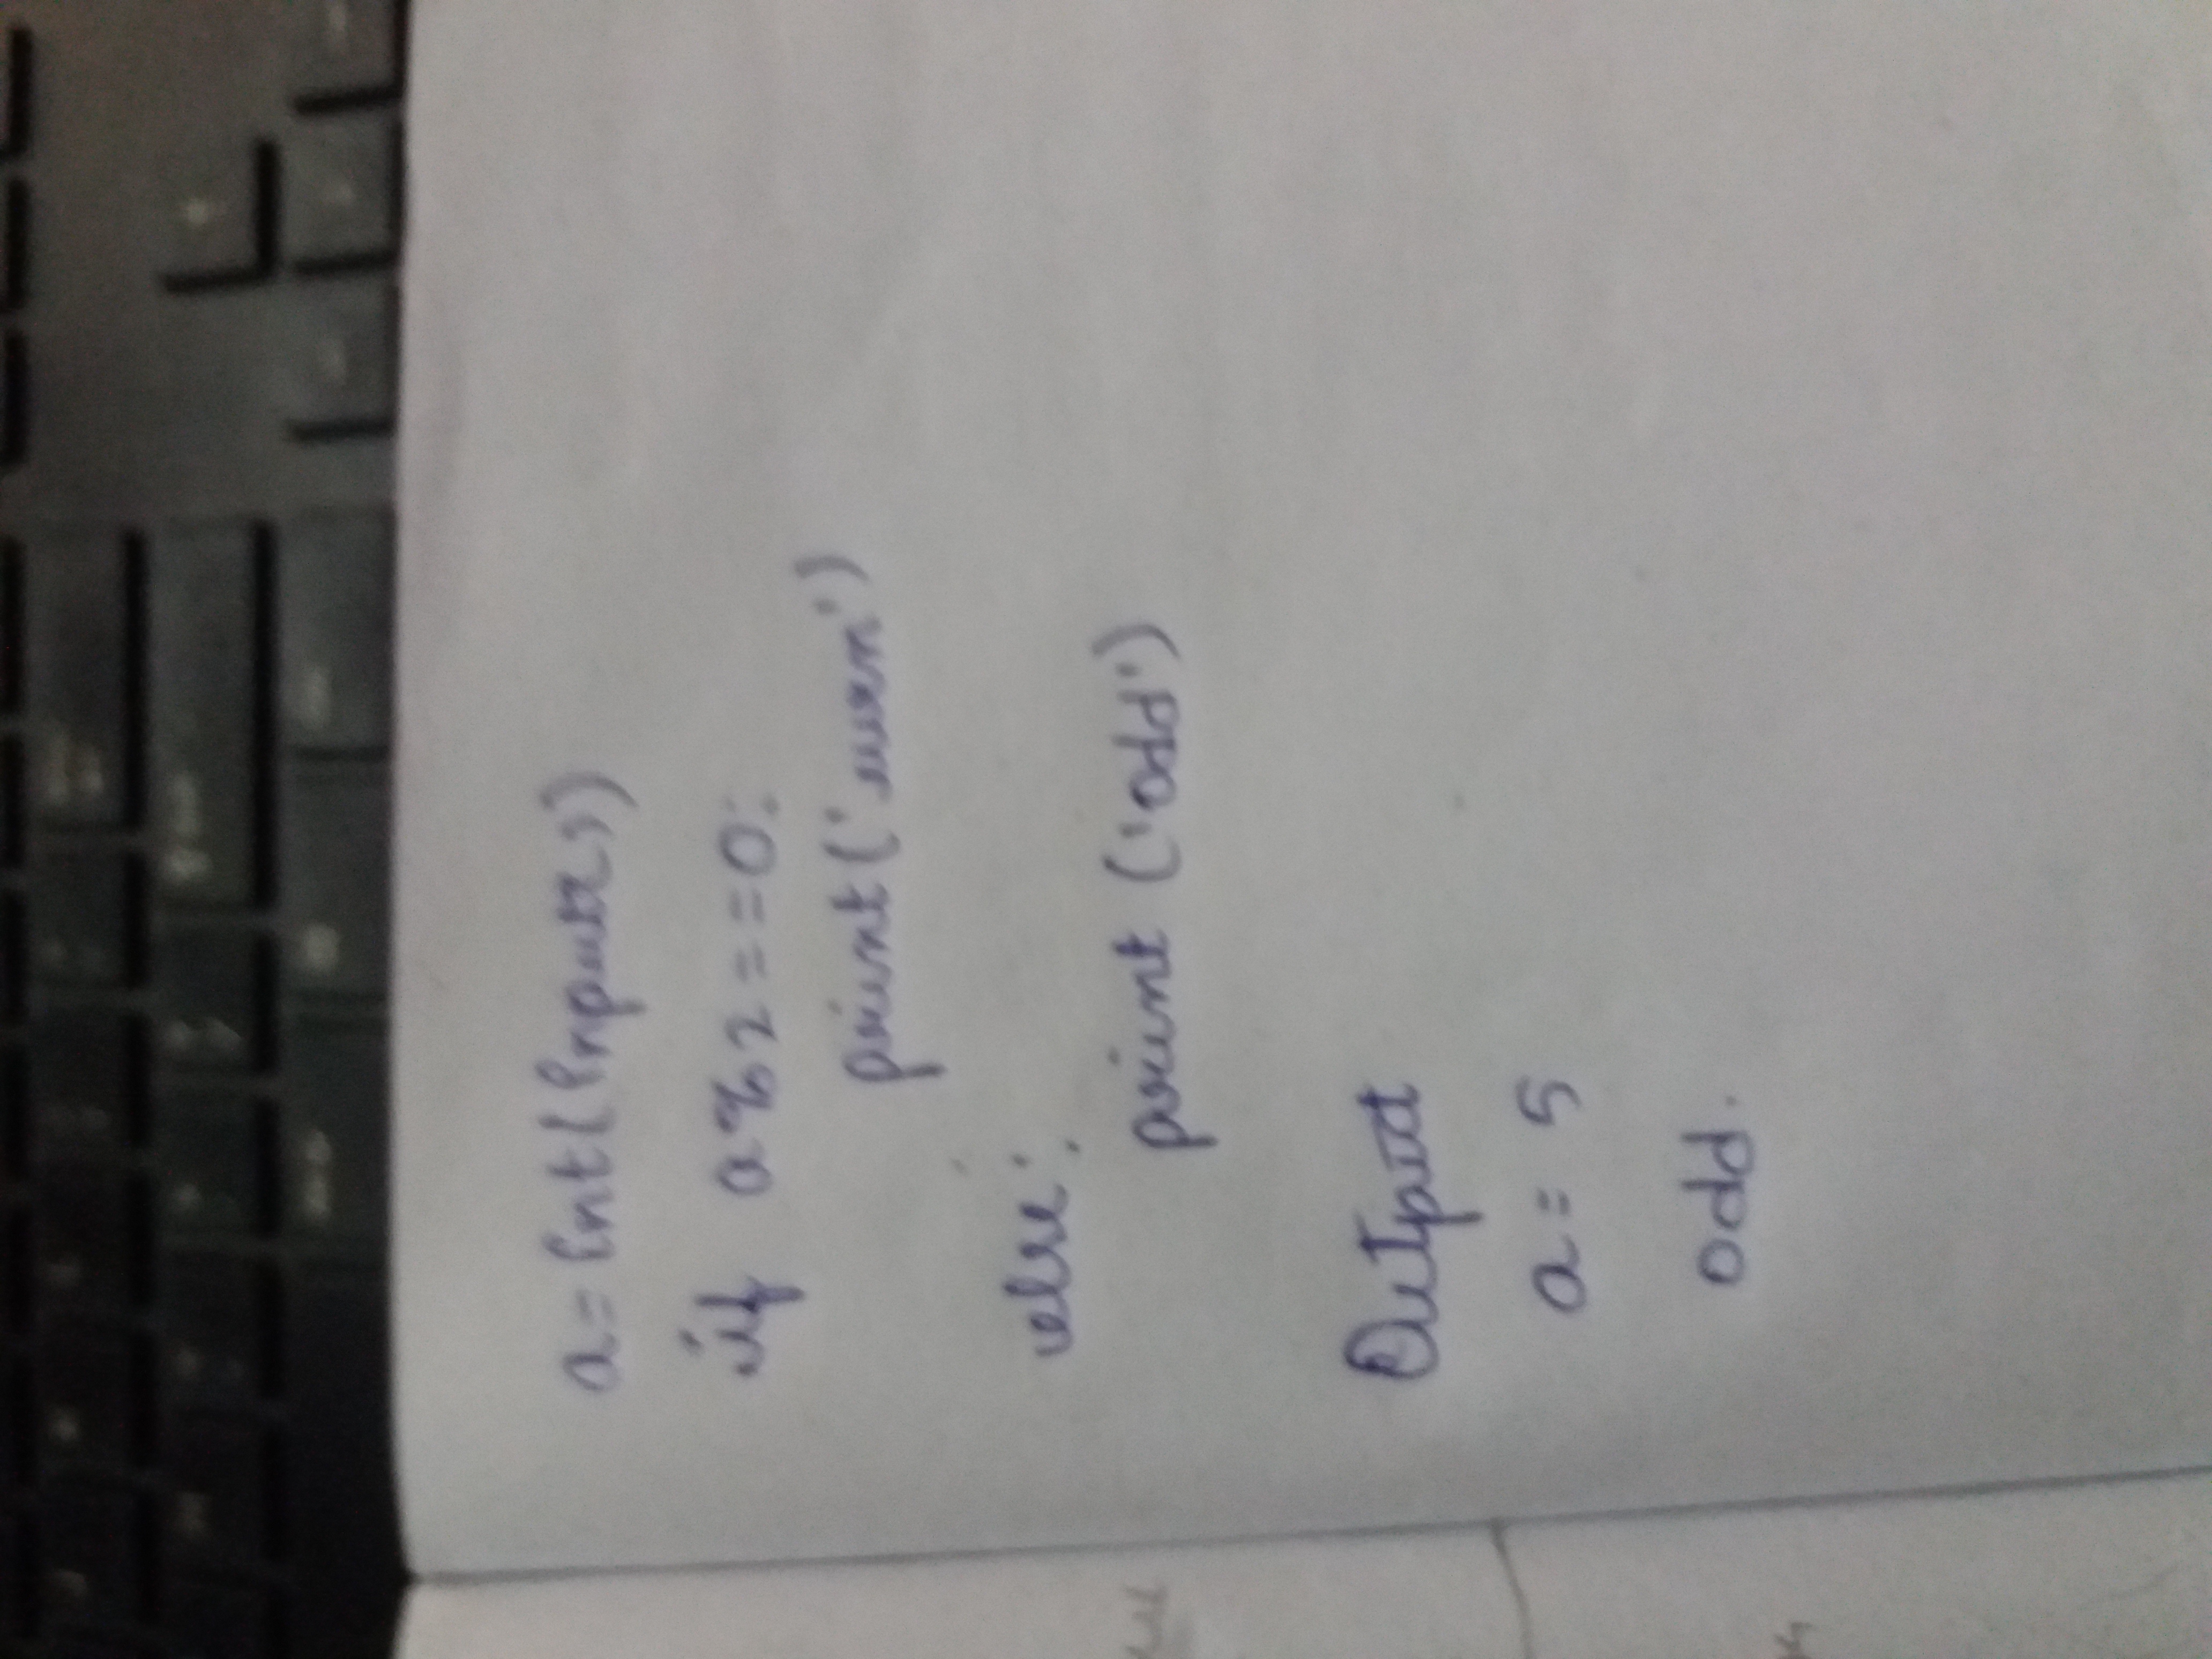 a=int(input())
if a%2==0:
print('even')
else:
print('odd')
Output
a= 5
odd.